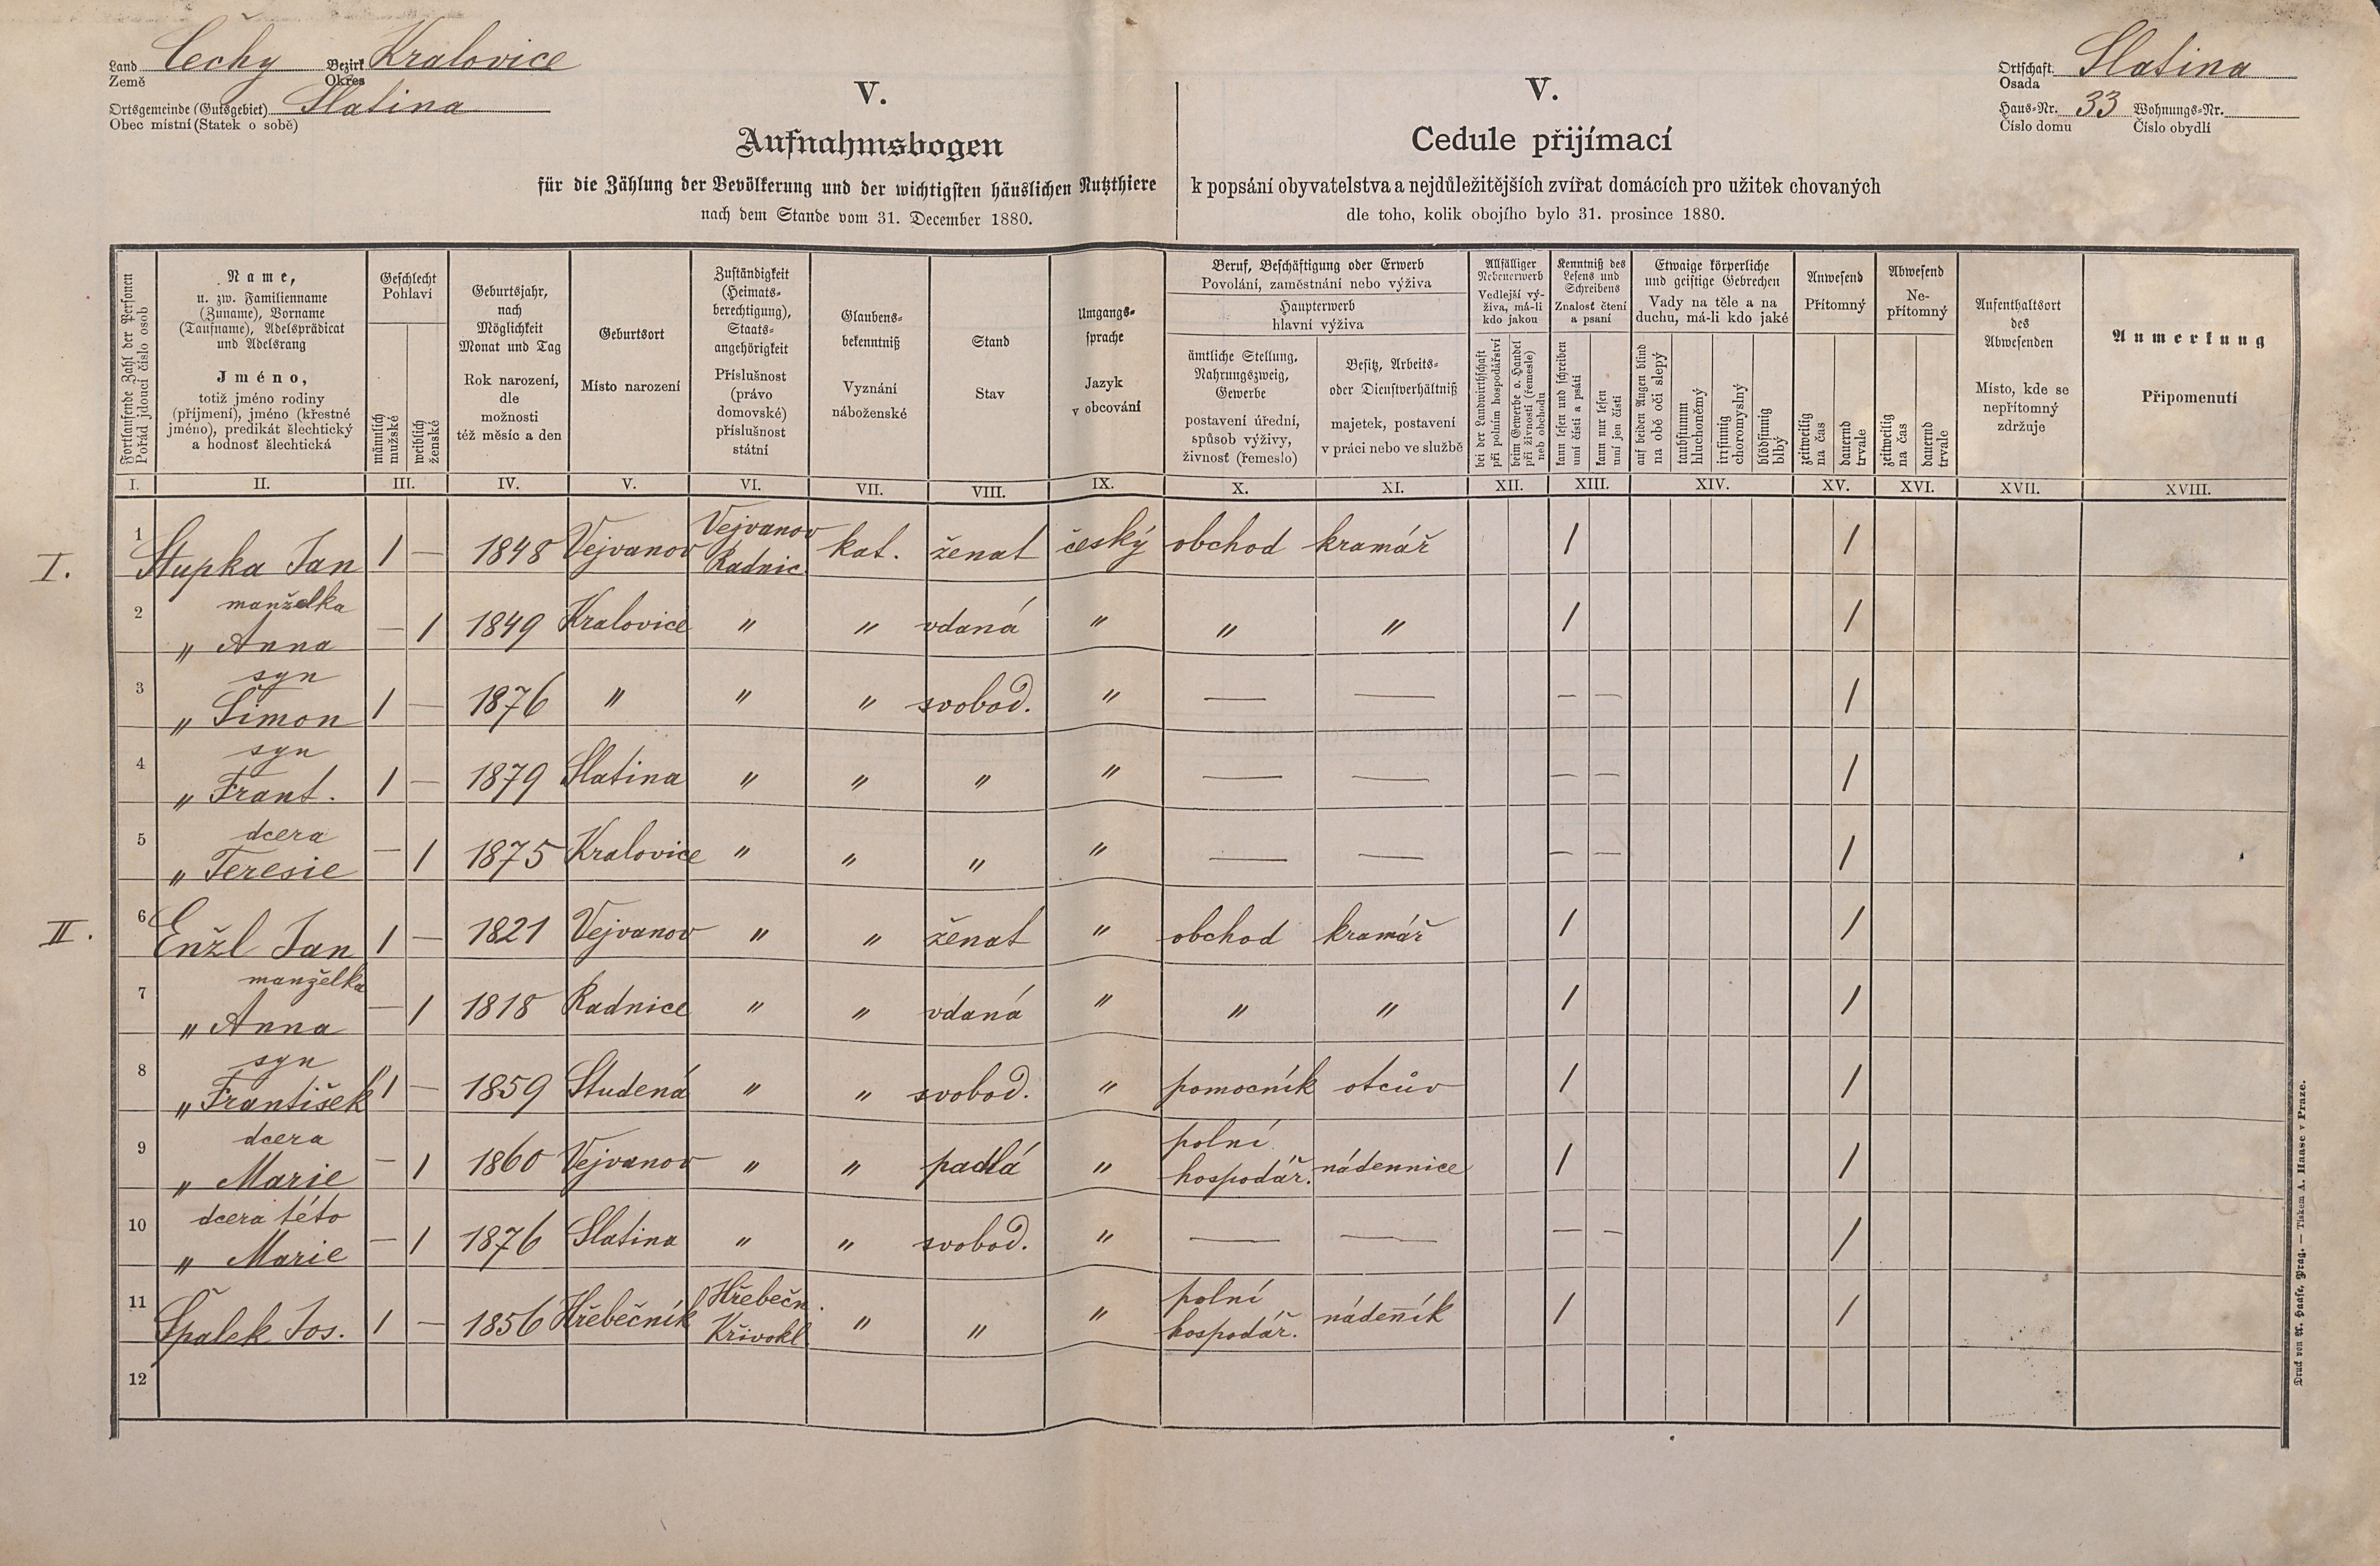 Land Čechy Bezirk Kralovice
Země Okres
Ortsgemeinde (Gutsgebiet) Slatina
Obec místní (Statek o sobě)
V.
Aufnahmsbogen
für die Zählung der Bevölkerung und der wichtigsten häuslichen Nutzthiere
nach dem Stande vom 31. December 1880.
V.
Cedule přijímací
k popsání obyvatelstva a nejdůležitějších zvířat domácích pro užitek chovaných
dle toho, kolik obojího bylo 31. prosince 1880.
Ortschaft Slatina
Osada
Haus-Nr. 33 Wohnungs-Nr.
Číslo domu Číslo obydlí
Fortlaufende Zahl der Personen
Pořád jdoucí číslo osob
Name,
u. zw. Familienname
(Zuname), Vorname
(Taufname), Adelsprädicat
und Adelsrang
Jméno,
totiž jméno rodiny
(příjmení), jméno (křestné
jméno), predikát šlechtický
a hodnosť šlechtická
Geschlecht
Pohlaví
männlich
mužské
weiblich
ženské
Geburtsjahr,
nach
Möglichkeit
Monat und Tag
Rok narození,
dle
možnosti
též měsíc a den
Geburtsort
Místo narození
Zuständigkeit
(Heimats-
berechtigung),
Staats-
angehörigkeit
Příslušnost
(právo
domovské)
příslušnost
státní
Glaubens-
bekenntniß
Vyznání
náboženské
Stand
Stav
Umgangs-
sprache
Jazyk
v obcování
Beruf, Beschäftigung oder Erwerb
Povolání, zaměstnání nebo výživa
Haupterwerb
hlavní výživa
ämtliche Stellung,
Nahrungszweig,
Gewerbe
postavení úřední,
spůsob výživy,
živnosť (řemeslo)
Besitz, Arbeits-
oder Dienstverhältniß
majetek, postavení
v práci nebo ve službě
Allfälliger
Nebenerwerb
Vedlejší vý-
živa, má-li
kdo jakou
bei der Landwirthschaft
při polním hospodářství
beim Gewerbe o. Handel
při živnosti (řemesle)
neb obchodu
Kenntniß des
Lesens und
Schreibens
Znalosť čtení
a psaní
kann lesen und schreiben
umí čísti a psáti
kann nur lesen
umí jen čísti
Etwaige körperliche
und geistige Gebrechen
Vady na těle a na
duchu, má-li kdo jaké
auf beiden Augen blind
na obě oči slepý
taubstumm
hluchoněmý
irrsinnig
choromyslný
blödsinnig
blbý
Anwesend
Přítomný
zeitweilig
na čas
dauernd
trvale
Abwesend
Ne-
přítomný
zeitweilig
na čas
dauernd
trvale
Aufenthaltsort
des
Abwesenden
Místo, kde se
nepřítomný
zdržuje
Anmerkung
Připomenutí
I. II. III. IV. V. VI. VII. VIII. IX. X. XI. XII. XIII. XIV. XV. XVI. XVII. XVIII.
I. 1 Stupka Jan 1 — 1848 Vejvanov Vejvanov Radnic. kat. ženat český obchod kramář 1 1
2 manželka
„ Anna — 1 1849 Kralovice „ „ vdaná „ „ „ 1 1
3 syn
„ Šimon 1 — 1876 „ „ „ svobod. „ — — — — 1
4 syn
„ Frant. 1 — 1879 Slatina „ „ „ „ — — — — 1
5 dcera
„ Teresie — 1 1875 Kralovice „ „ „ „ — — — — 1
II. 6 Enžl Jan 1 — 1821 Vejvanov „ „ ženat „ obchod kramář 1 1
7 manželka
„ Anna — 1 1818 Radnice „ „ vdaná „ „ „ 1 1
8 syn
„ František 1 — 1859 Studená „ „ svobod. „ pomocník otcův 1 1
9 dcera
„ Marie — 1 1860 Vejvanov „ „ padlá „ polní hospodář. nádennice 1 1
10 dcera této
„ Marie — 1 1876 Slatina „ „ svobod. „ — — — — 1
11 Špalek Jos. 1 — 1856 Hřebečník Hřebečn. Křivokl. „ „ „ polní hospodář. nádeník 1 1
12
Druck von A. Haase, Prag. — Tiskem A. Haase v Praze.